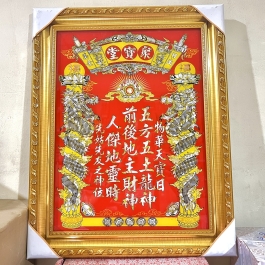 聚寶堂
物華天寶日
五方五土龍神
前後地主財神
人傑地靈時
先友之神位